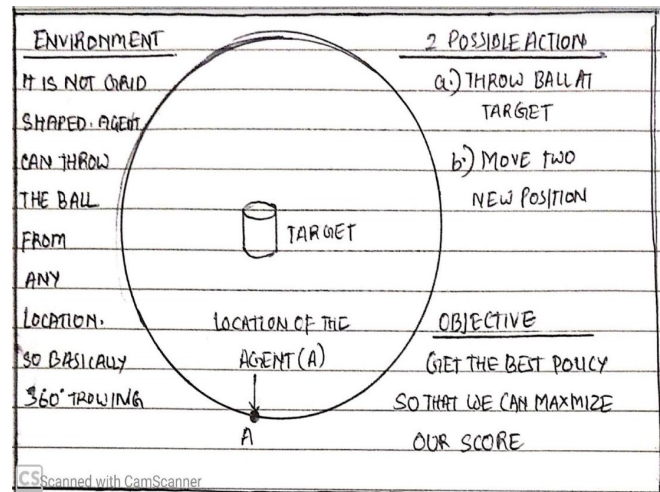 ENVIRONMENT
IT IS NOT GRID
SHAPED. AGENT
CAN THROW
THE BALL
FROM
ANY
LOCATION.
SO BASICALLY
360° TROWING
TARGET
LOCATION OF THE
AGENT (A)
A
2 POSSIBLE ACTION
a:) THROW BALL AT
TARGET
b:) MOVE TWO
NEW POSITION
OBJECTIVE
GET THE BEST POLICY
SO THAT WE CAN MAXMIZE
OUR SCORE
CS Scanned with CamScanner